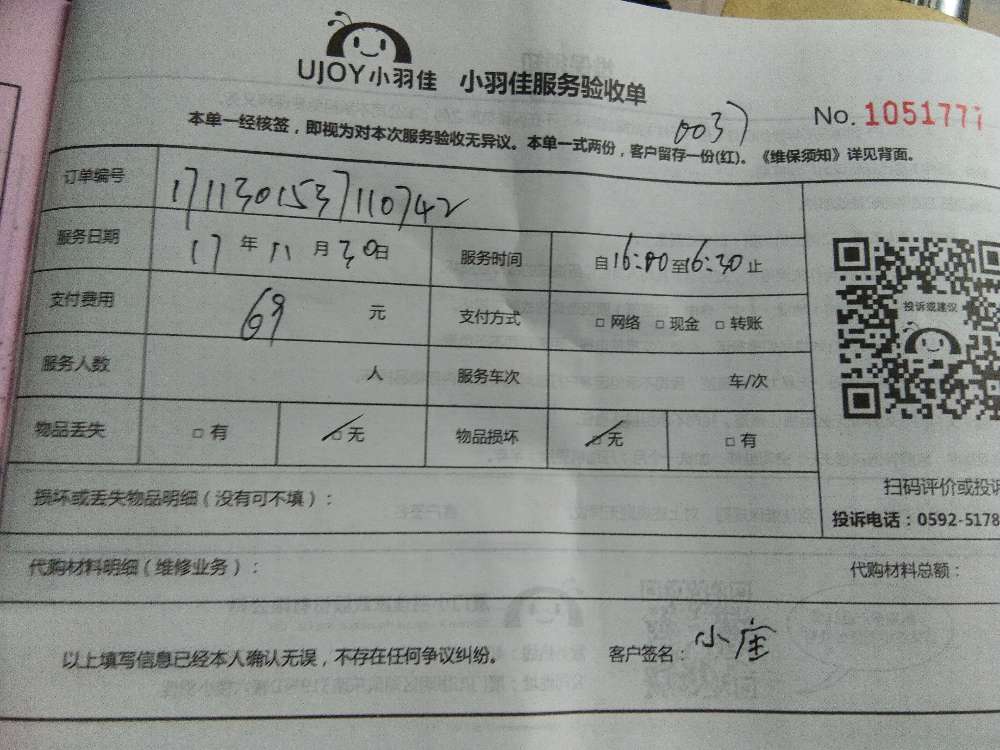 UJOY小羽佳 小羽佳服务验收单
No. 1051777
0037
本单一经核签，即视为对本次服务验收无异议。本单一式两份，客户留存一份(红)。《维保须知》详见背面。
订单编号 1711301537110742
服务日期 17年11月30日 服务时间 自16:00至16:30止
支付费用 69 元 支付方式 □ 网络 □ 现金 □ 转账
服务人数 人 服务车次 车/次
物品丢失 □ 有 □ 无 物品损坏 □ 无 □ 有
投诉或建议
扫码评价或投诉
损坏或丢失物品明细（没有可不填）：
投诉电话：0592-5178
代购材料明细（维修业务）： 代购材料总额：
以上填写信息已经本人确认无误，不存在任何争议纠纷。 客户签名：小座